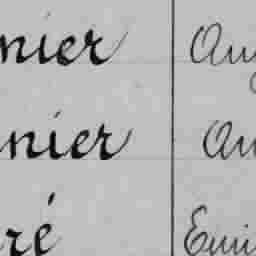 nier Aug
nier Au
ré Emi